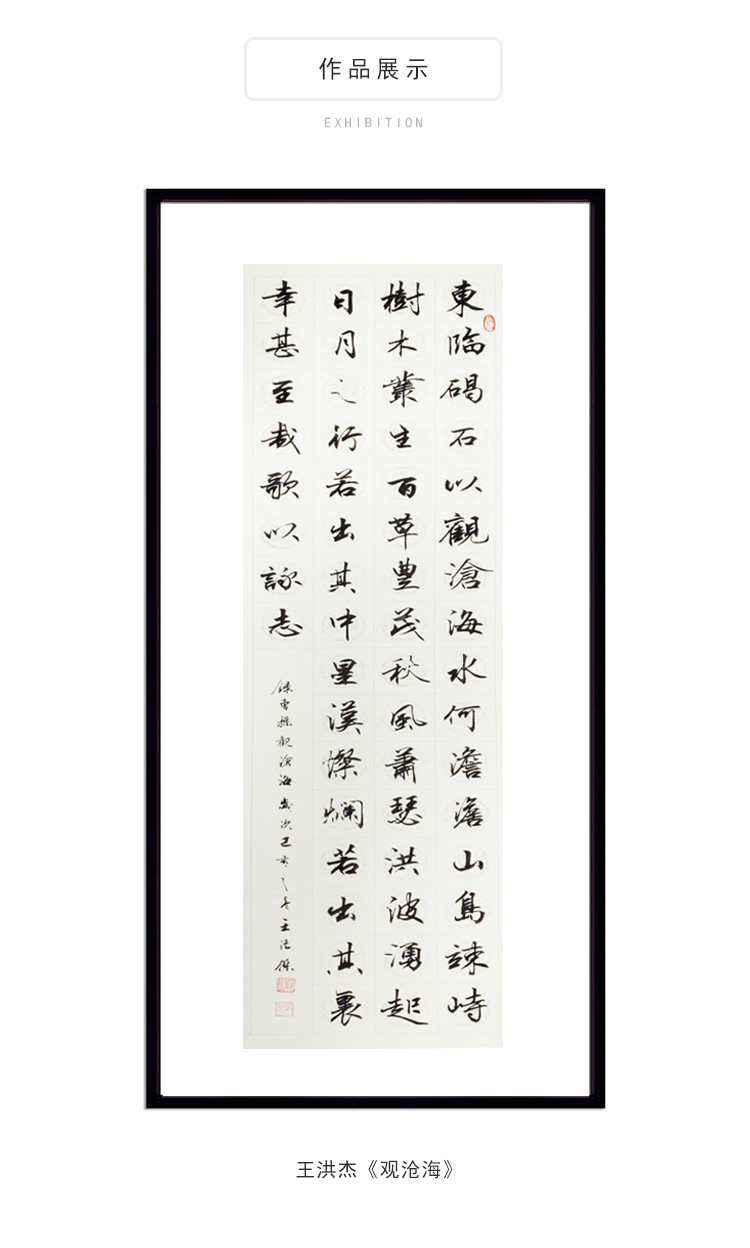 作品展示
EXHIBITION
東臨碣石以觀滄海水何澹澹山島竦峙
樹木叢生百草豊茂秋風蕭瑟洪波湧起
日月之行若出其中星漢燦爛若出其裏
幸甚至哉歌以詠志
錄曹操觀滄海歲次己亥之冬王洪傑
王洪杰《观沧海》